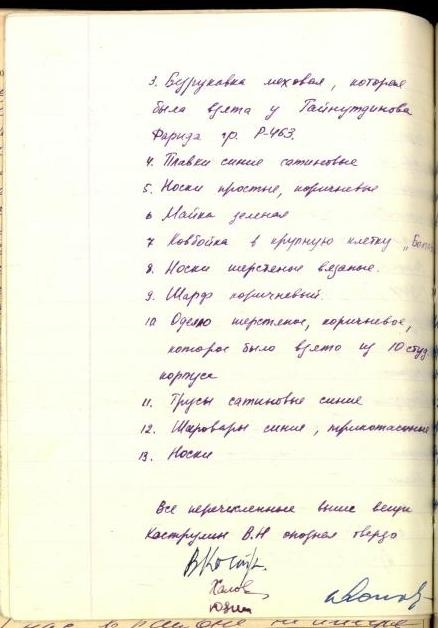 3. Бурукавка меховая, которая
была взята у Гайнутдинова
Фарида гр. Р-463.
4. Плавки синие сатиновые
5. Носки простые, коричневые
6 Майка зеленая
7 Ковбойка в крупную клетку
8. Носки шерстеные вязаные.
9. Шарф коричневый.
10 Одеяло шерстяное, коричневое,
которое было взято из 10 студ
корпуса
11. Трусы сатиновые синие
12. Шаровары синие, трикотажные
13. Носки
Все перечисленные выше вещи
Кострулин В.Н опознал твердо
Халов
Юдин